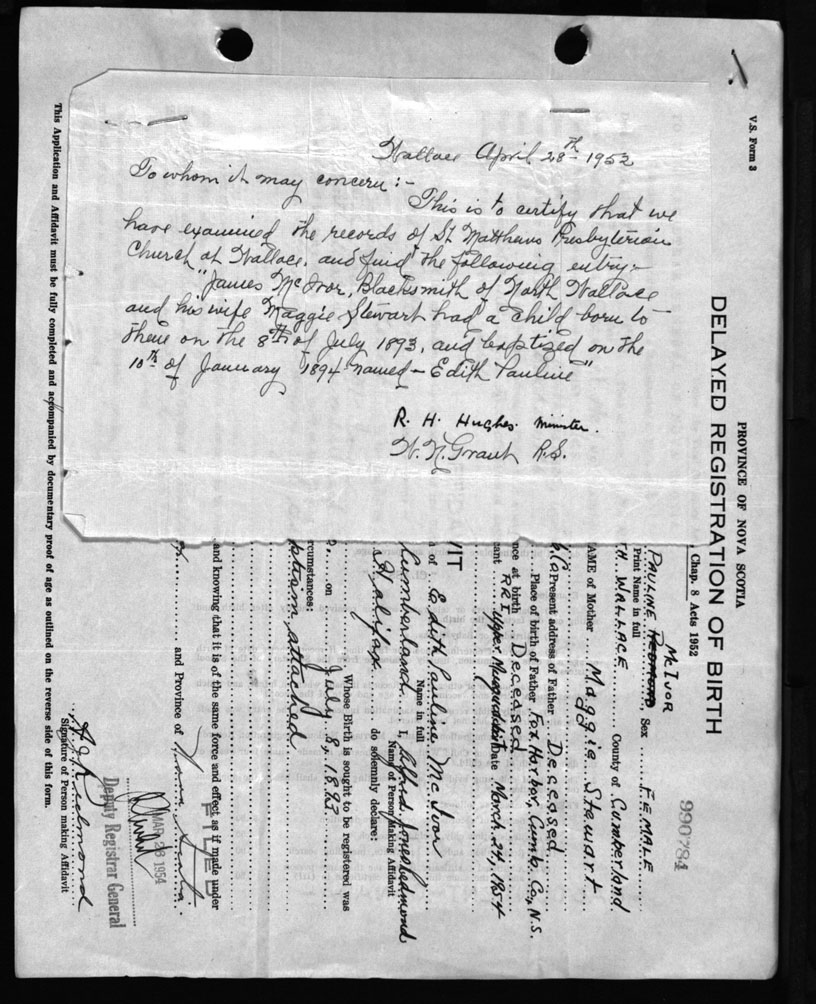 Wallace April 28th 1952
To whom it may concern:-
This is to certify that we
have examined the records of St Matthews Presbyterian
Church at Wallace, and find the following entry:-
"James McIvor, Blacksmith of North Wallace
and his wife Maggie Stewart had a child born to
them on the 8th of July 1893, and baptized on the
10th of January 1894 named - Edith Pauline"
R. H. Hughes. Minister.
W. N. Grant R.S.
V.S. Form 3
PROVINCE OF NOVA SCOTIA
DELAYED REGISTRATION OF BIRTH
Chap. 8 Acts 1952
990784
McIvor
PAULINE REDMOND, Sex FEMALE
Print Name in full
TH WALLACE County of Cumberland
AME of Mother Maggie Stewart
Present address of Father Deceased
Place of birth of Father Fox Harbor, Cumb. Co., N.S.
nce at birth Deceased
cant RR1 Upper Musquodoboit Date March 24, 1954
VIT
of Edith Pauline McIvor
Name in full
Cumberland I, Alfred Jones Redmond
Name of Person Making Affidavit
Halifax do solemnly declare:
Whose Birth is sought to be registered was
on July 8, 1893
rcumstances:
ptism attached
and knowing that it is of the same force and effect as if made under
and Province of Nova Scotia
FILED
MAR 28 1954
Deputy Registrar General
A J Redmond
Signature of Person making Affidavit
This Application and Affidavit must be fully completed and accompanied by documentary proof of age as outlined on the reverse side of this form.